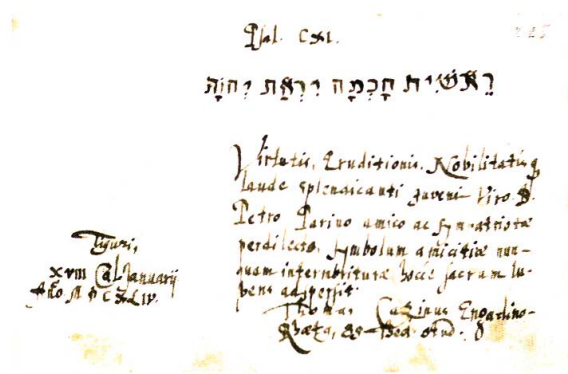 Psal. CXI.
רֵאשִׁית חָכְמָה יִרְאַת יְהוָה
Virtutis, Eruditionis, Nobilitatisq
laude splendicanti Juveni Viro D.
Petro Parino amico ac sympatriotæ
perdilecto, symbolum amicitiæ nun-
quam intermorituræ hocce sacrum lu-
bens adspersit
Thomas Engadino-
Rhæta, stud.
Tiguri,
XVIII Cal Januarij
Año MDCXLIV.